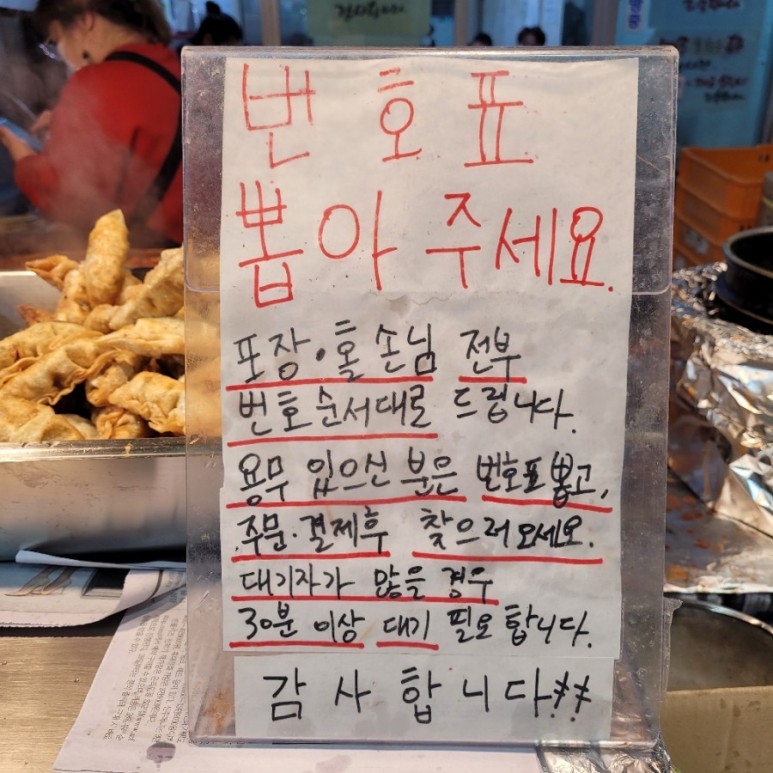 번호표
뽑아 주세요.
포장·홀 손님 전부
번호순서대로 드립니다.
용무 있으신 분은 번호표 뽑고,
주문·결제후 찾으러 오세요.
대기자가 많을 경우
30분 이상 대기 필요합니다.
감사합니다